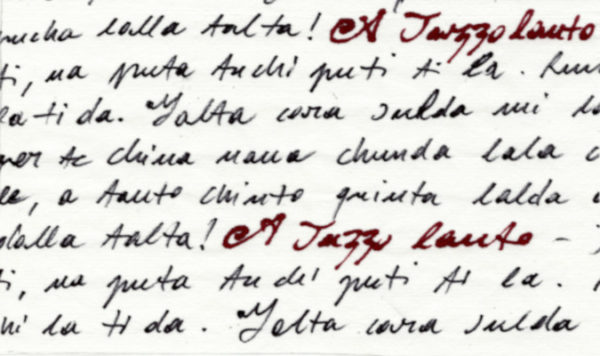 pucha lalla talta! A Tazzo lanto
ti, na puta tuchi puti ti la.
la ti da. Yalta cara sulda mi
te china nana chunda lala
a tanto chinto quinta lalda
dalla talta! A Tazzo lanto -
ti, na puta tuchi puti ti la.
la ti da. Yolta cara sulda